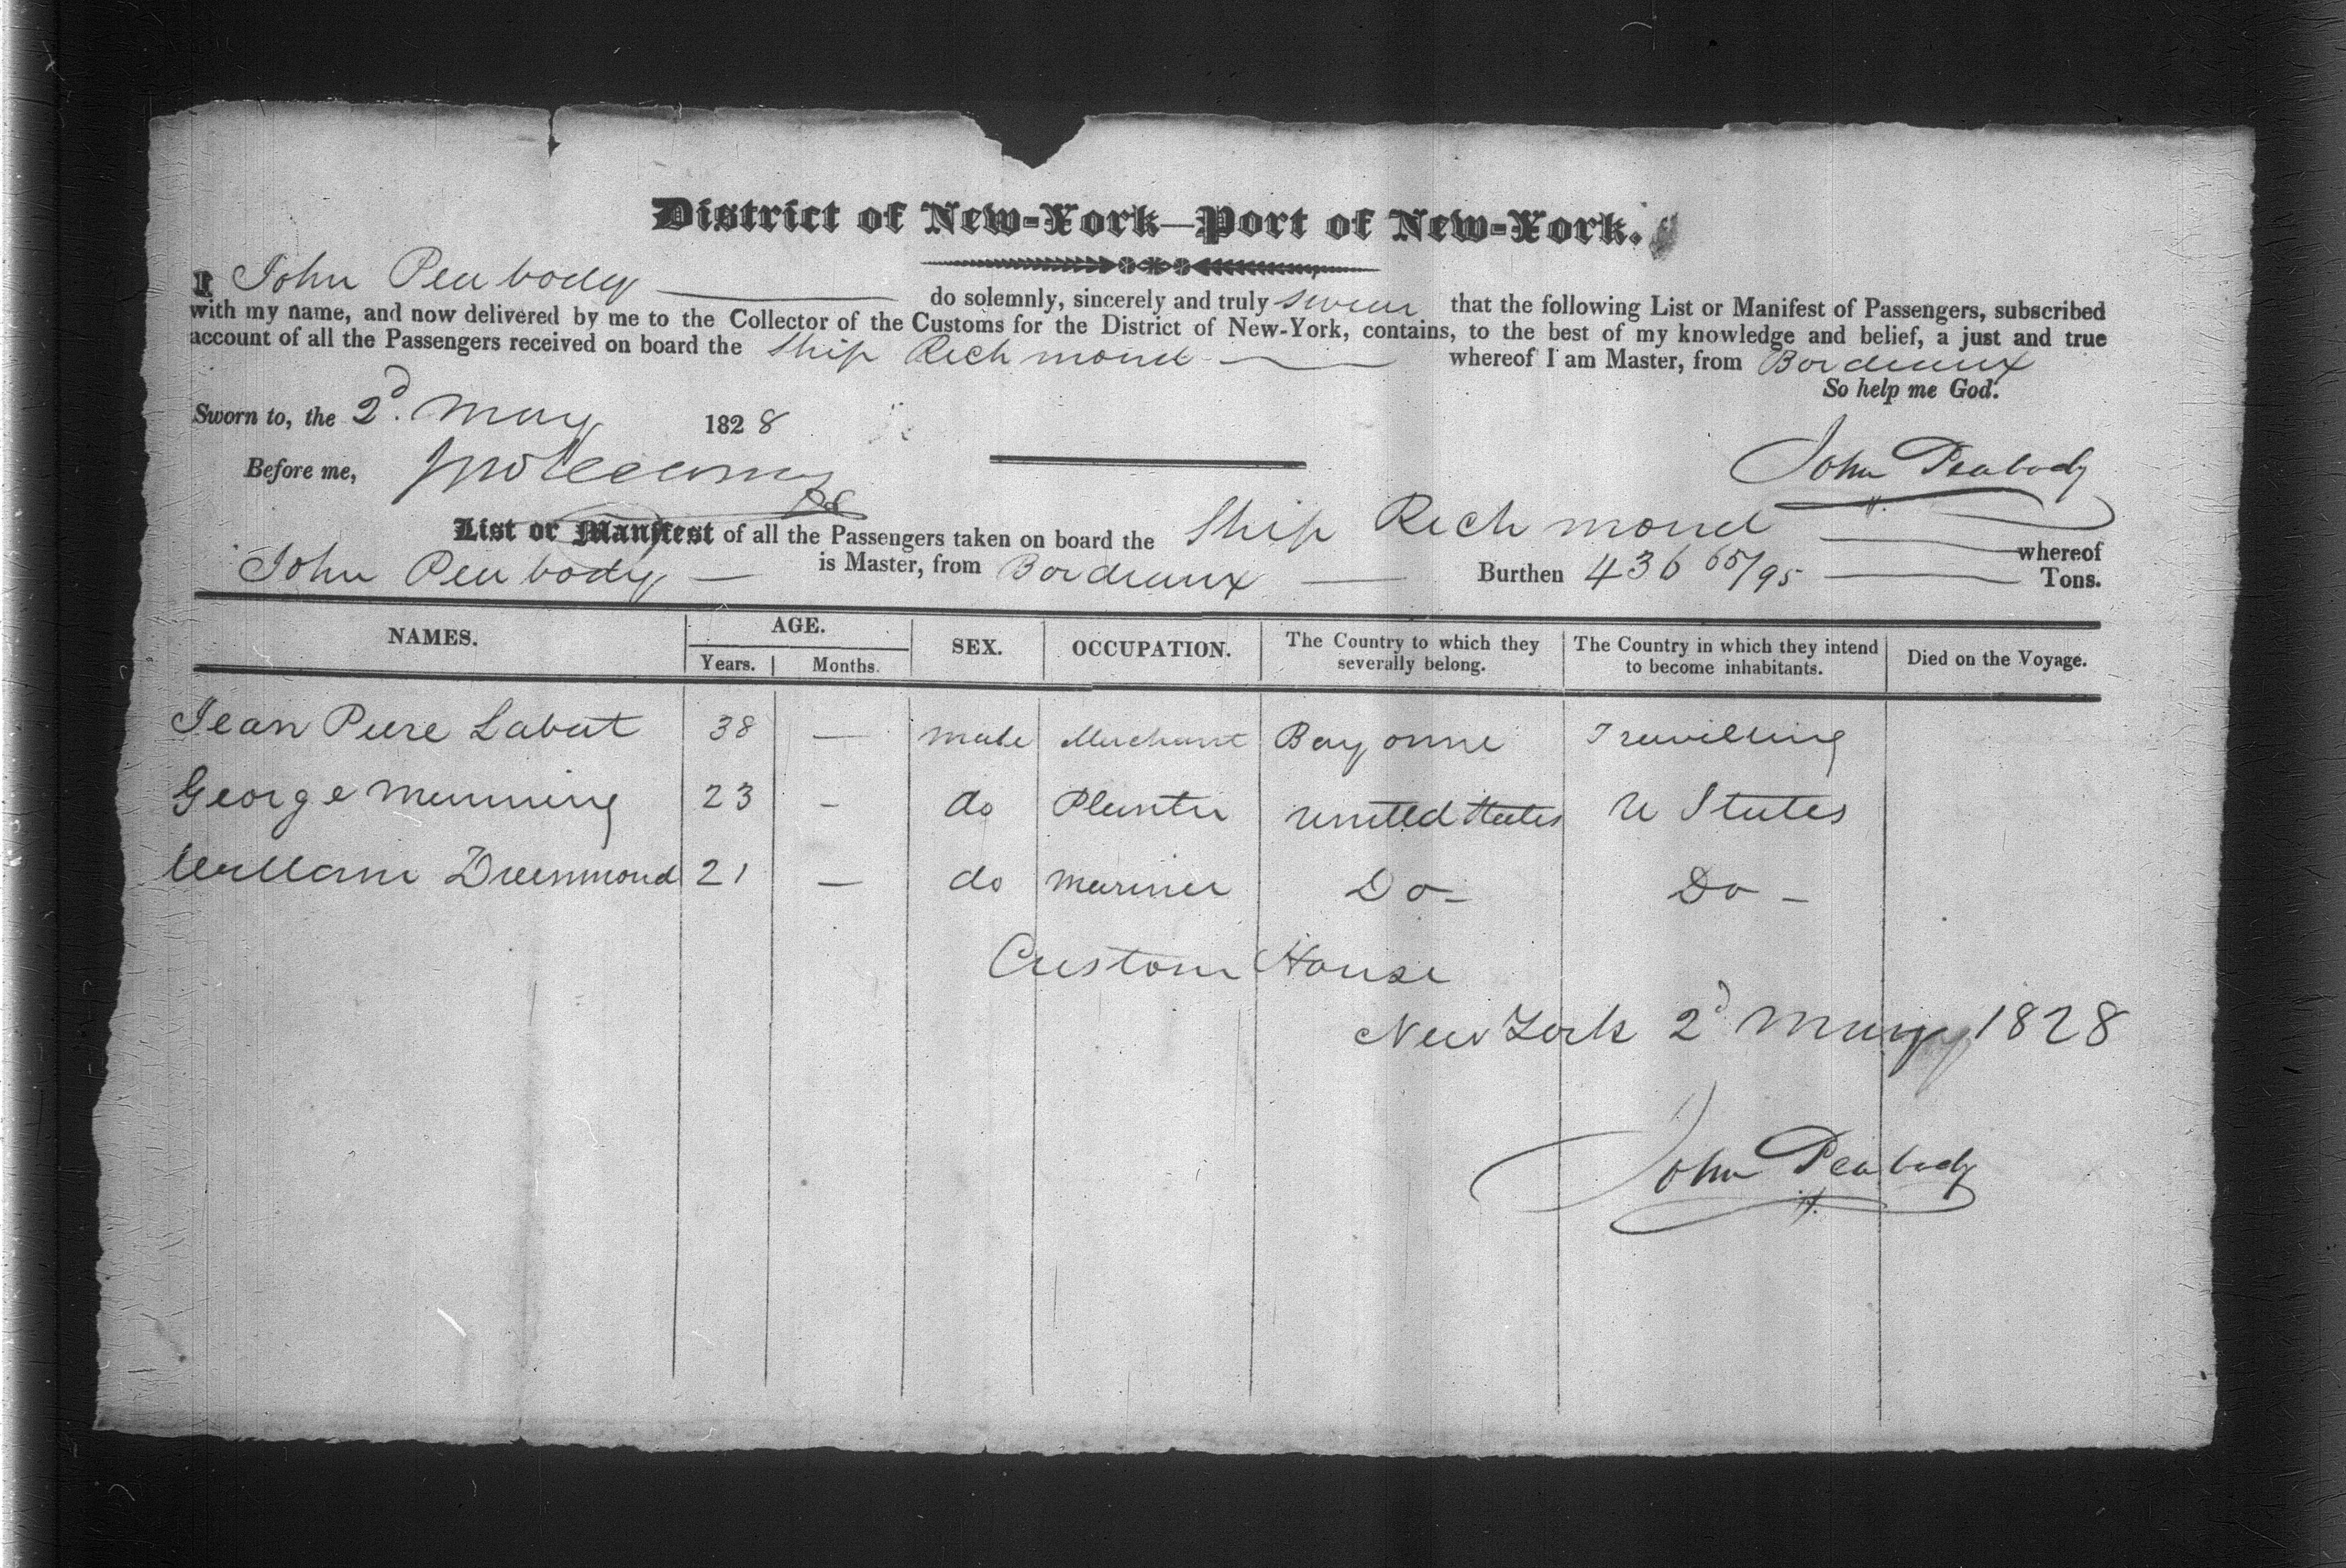 District of New-York—Port of New-York.
I John Peabody do solemnly, sincerely and truly swear that the following List or Manifest of Passengers, subscribed
with my name, and now delivered by me to the Collector of the Customs for the District of New-York, contains, to the best of my knowledge and belief, a just and true
account of all the Passengers received on board the Ship Richmond whereof I am Master, from Bordeaux
So help me God.
Sworn to, the 2d. May 1828
Before me,
John Peabody
List or Manifest of all the Passengers taken on board the Ship Richmond whereof
John Peabody — is Master, from Bordeaux — Burthen 436 65/95 — Tons.
NAMES. AGE. SEX. OCCUPATION. The Country to which they severally belong. The Country in which they intend to become inhabitants. Died on the Voyage.
Years. Months.
Jean Piere Labat 38 — male Merchant Bayonne Travilling
George Manning 23 - do Planter United States U States
William Drummond 21 — do mariner Do - Do -
Custom House
New York 2d May 1828
John Peabody